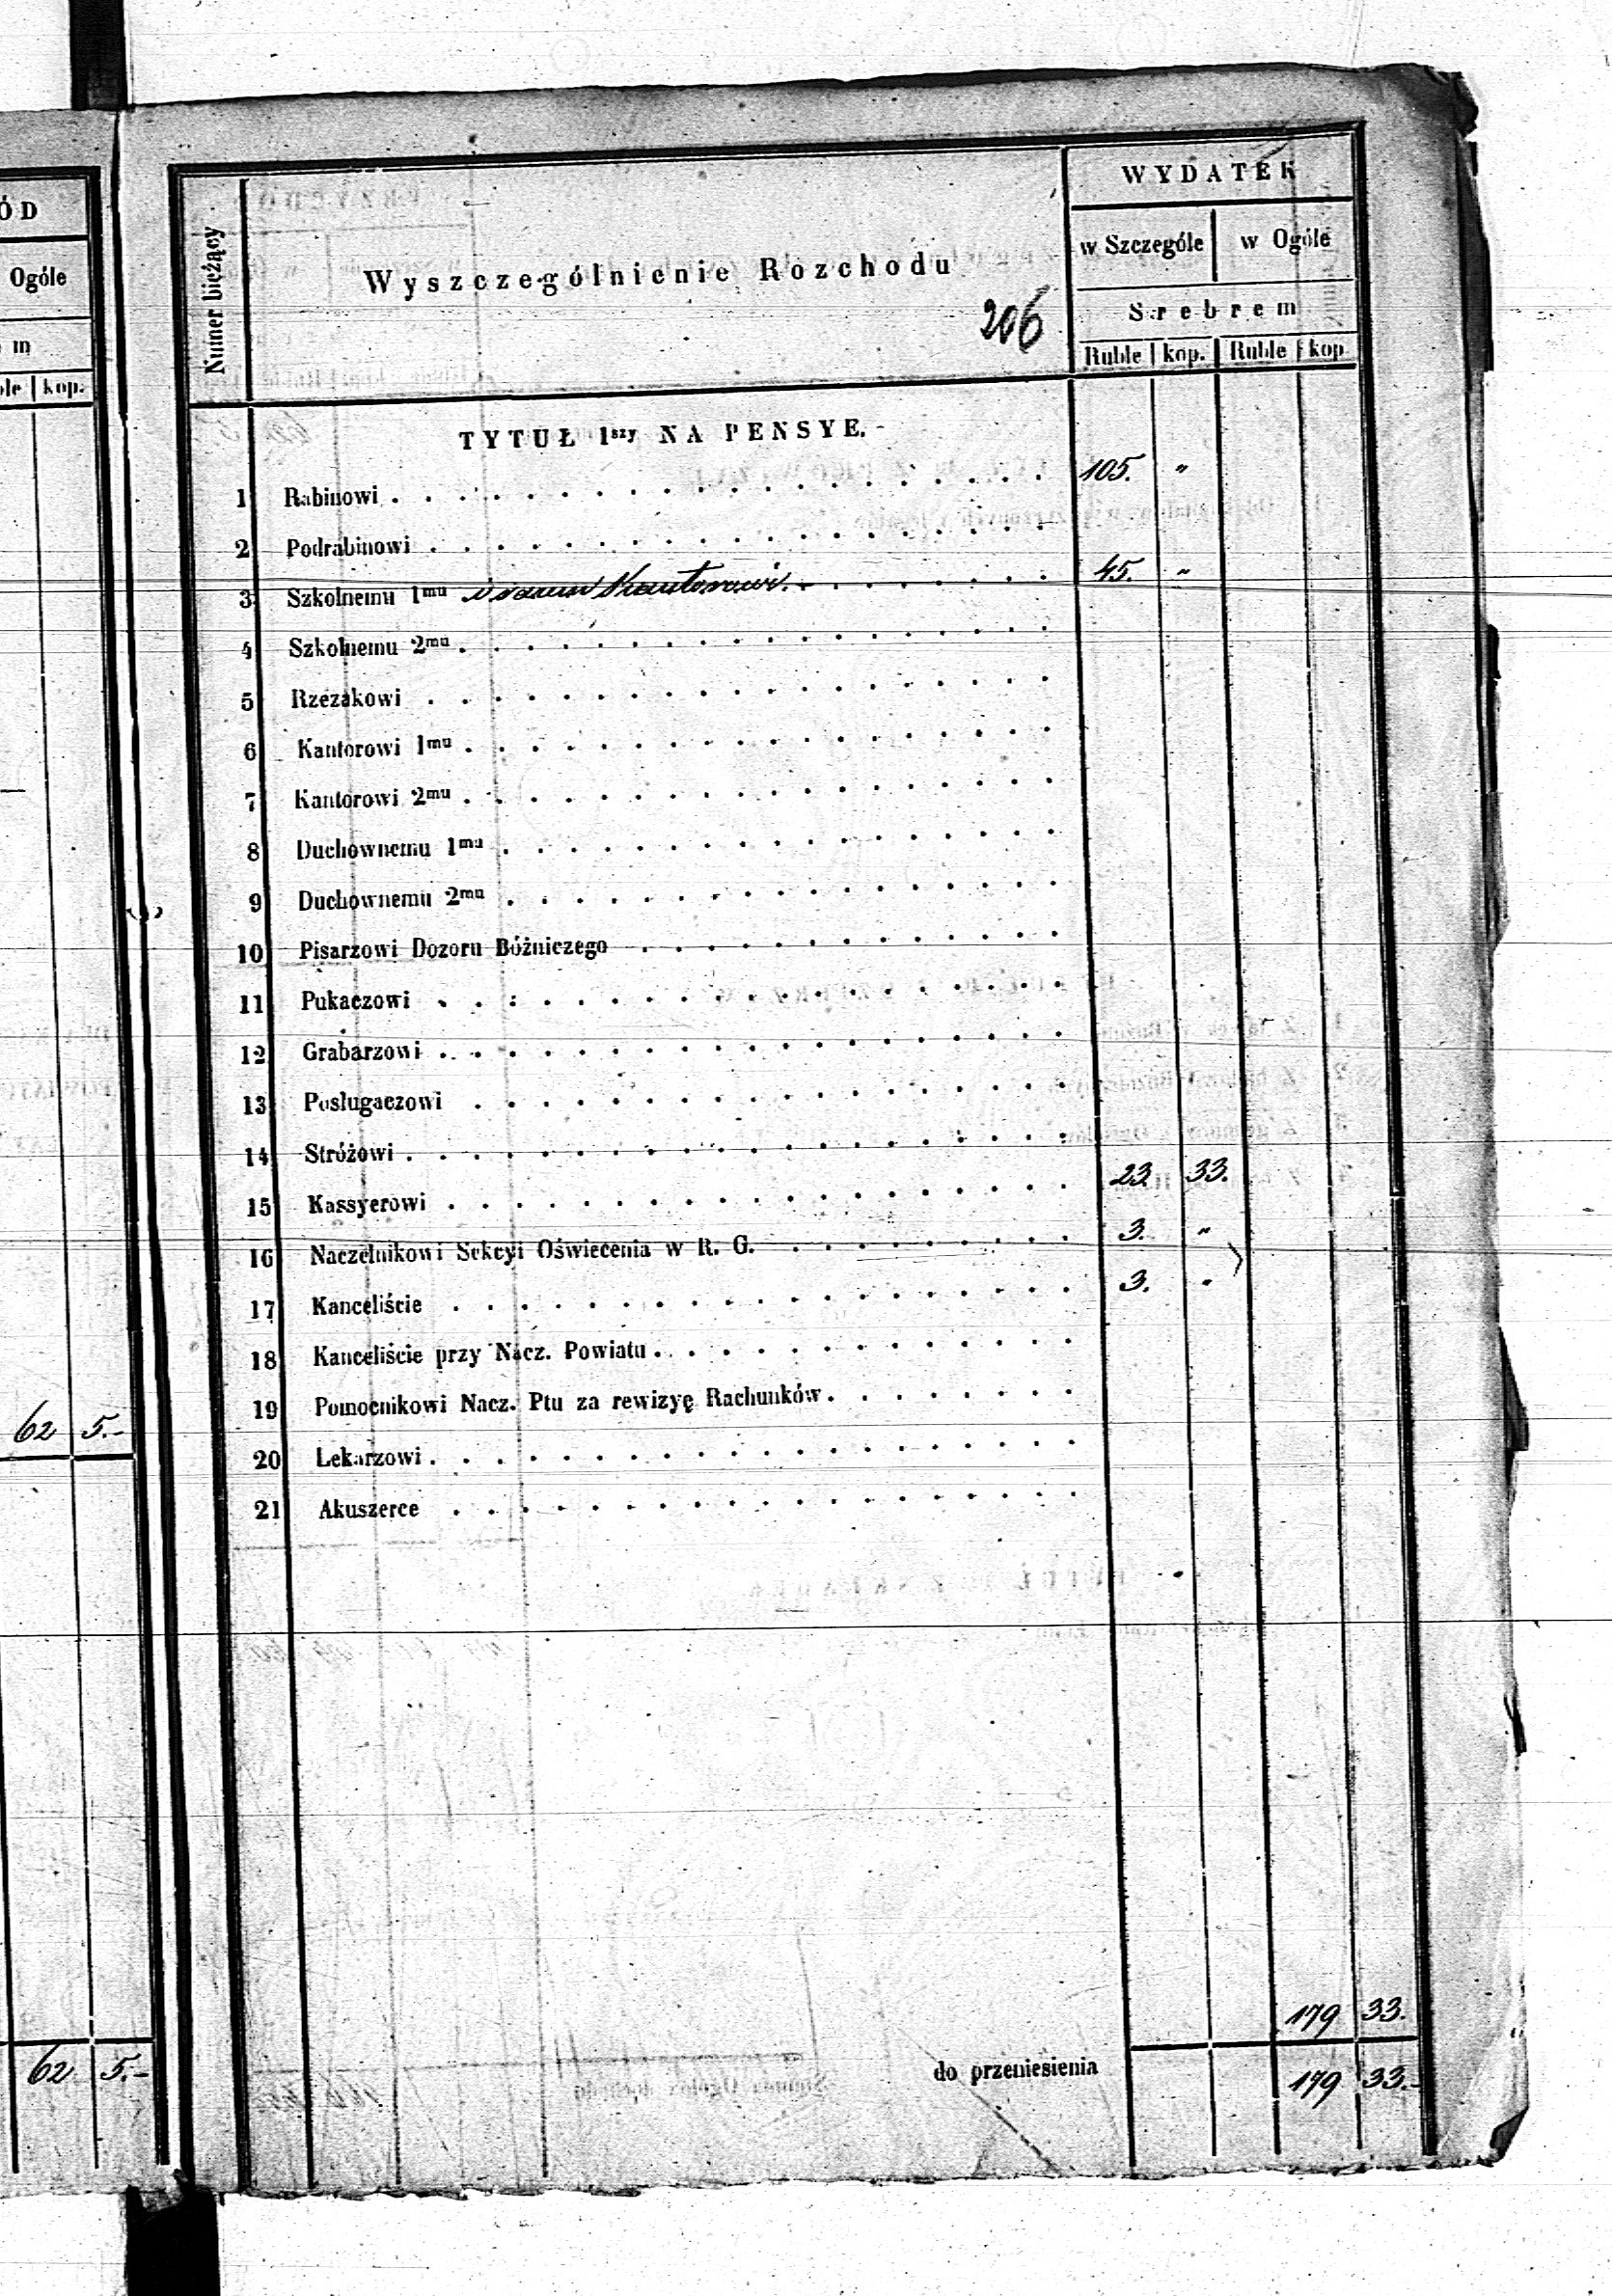 ÓD
Ogóle
m
kop.
62 5.-
62 5.-
Numer bieżący
Wyszczególnienie Rozchodu
206
WYDATEK
w Szczególe w Ogóle
Srebrem
Ruble kop. Ruble kop
TYTUŁ 1szy NA PENSYE.
1 Rabinowi . . . 105. "
2 Podrabinowi . . .
3 Szkolnemu 1mu i Kantorowi . . . 45. "
4 Szkolnemu 2mu . . .
5 Rzezakowi . . .
6 Kantorowi 1mu . . .
7 Kantorowi 2mu . . .
8 Duchownemu 1mu . . .
9 Duchownemu 2mu . . .
10 Pisarzowi Dozoru Bóżniczego . . .
11 Pukaczowi . . .
12 Grabarzowi . . .
13 Posługaczowi . . .
14 Stróżowi . . .
15 Kassyerowi . . . 23. 33.
16 Naczelnikowi Sekcyi Oświecenia w R. G. . . . 3. "
17 Kanceliście . . . 3. "
18 Kanceliście przy Nacz. Powiatu . . .
19 Pomocnikowi Nacz. Ptu za rewizyę Rachunków . . .
20 Lekarzowi . . .
21 Akuszerce . . .
179 33.
do przeniesienia 179 33.